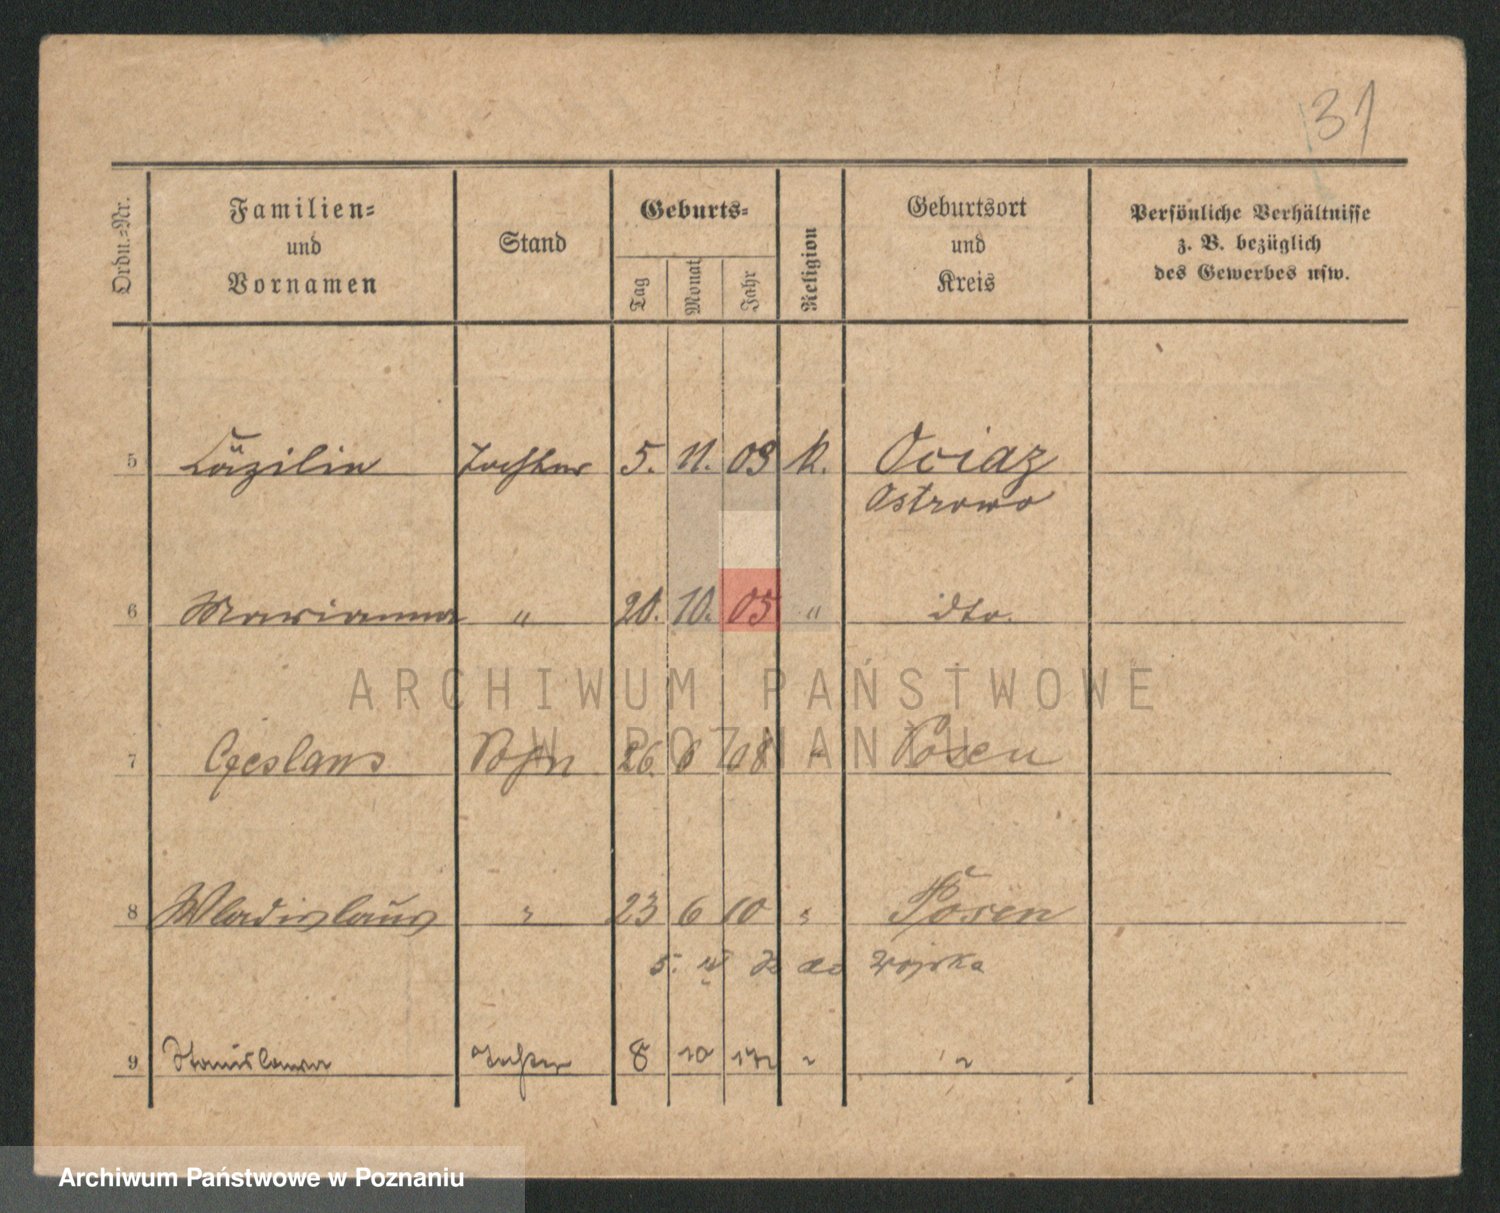 31
Ordn.-Nr.
Familien-
und
Vornamen
Stand
Geburts-
Tag
Monat
Jahr
Religion
Geburtsort
und
Kreis
Persönliche Verhältnisse
z. B. bezüglich
des Gewerbes usw.
5 Cäzilie Tochter 5. 11. 03 k. Ociaz
Ostrowo
6 Marianna " 20. 10. 05 " dto.
ARCHIWUM PAŃSTWOWE
W POZNANIU
7 Czeslaus Sohn 26. 6 08 " Posen
8 Wladislaus " 23 6 10 " Posen
5. do wojska
9 Stanislawa Tochter 8 10 "  "
Archiwum Państwowe w Poznaniu